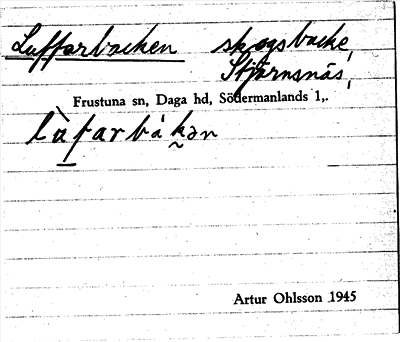 Luffarbacken skogsbacke,
Stjärnsnäs,
Frustuna sn, Daga hd, Södermanlands l,.
lùfarbákən
Artur Ohlsson 1945